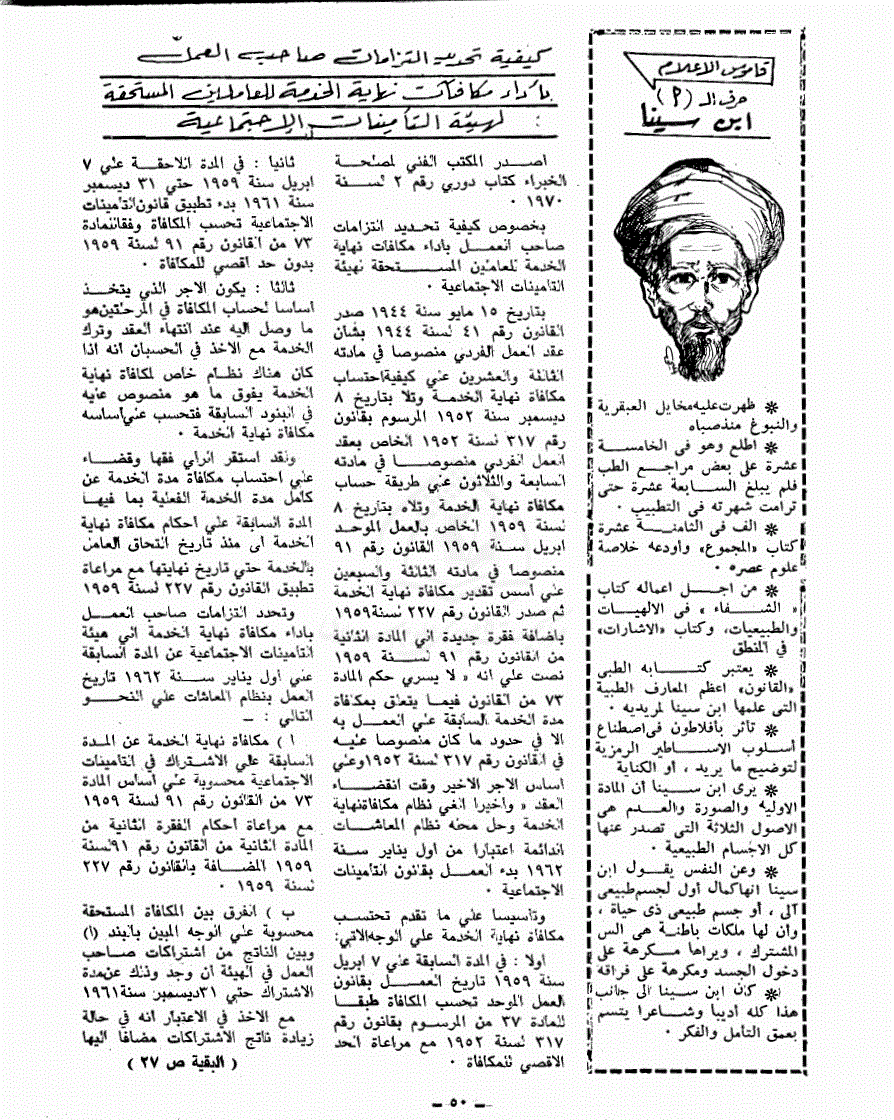 كيفية تحديد التزامات صاحب العمل
بأداء مكافآت نهاية الخدمة للعاملين المستحقة
لهيئة التأمينات الاجتماعية :
اصدر المكتب الفني لمصلحة
الخبراء كتاب دوري رقم ٢ لسنة
١٩٧٠ .
بخصوص كيفية تحديد التزامات
صاحب العمل بأداء مكافات نهاية
الخدمة للعاملين المستحقة لهيئة
التأمينات الاجتماعية .
بتاريخ ١٥ مايو سنة ١٩٤٤ صدر
القانون رقم ٤١ لسنة ١٩٤٤ بشأن
عقد العمل الفردي منصوصا في مادته
الثالثة والعشرين علي كيفية احتساب
مكافأة نهاية الخدمة وتلا بتاريخ ٨
ديسمبر سنة ١٩٥٢ المرسوم بقانون
رقم ٣١٧ لسنة ١٩٥٢ الخاص بعقد
العمل الفردي منصوصا في مادته
السابعة والثلاثون علي طريقة حساب
مكافأة نهاية الخدمة وتلاه بتاريخ ٨
لسنة ١٩٥٩ الخاص بالعمل الموحد
ابريل سنة ١٩٥٩ القانون رقم ٩١
منصوصا في مادته الثالثة والسبعين
علي أسس تقدير مكافأة نهاية الخدمة
ثم صدر القانون رقم ٢٢٧ لسنة ١٩٥٩
باضافة فقرة جديدة الي المادة الثانية
من القانون رقم ٩١ لسنة ١٩٥٩
نصت علي انه « لا يسري حكم المادة
٧٣ من القانون فيما يتعلق بمكافأة
مدة الخدمة السابقة علي العمل به
الا في حدود ما كان منصوصا عليه
في القانون رقم ٣١٧ لسنة ١٩٥٢ وعلي
أساس الاجر الاخير وقت انقضاء
العقد » وأخيرا الغي نظام مكافأة نهاية
الخدمة وحل محله نظام المعاشات
الدائمة اعتبارا من أول يناير سنة
١٩٦٢ بدء العمل بقانون التأمينات
الاجتماعية .
وتأسيسا علي ما تقدم تحتسب
مكافأة نهاية الخدمة علي الوجه الاتي:
اولا : في المدة السابقة علي ٧ ابريل
سنة ١٩٥٩ تاريخ العمل بقانون
العمل الموحد تحسب المكافأة طبقا
للمادة ٣٧ من المرسوم بقانون رقم
٣١٧ لسنة ١٩٥٢ مع مراعاة الحد
الاقصي للمكافأة .
ثانيا : في المدة اللاحقة علي ٧
ابريل سنة ١٩٥٩ حتي ٣١ ديسمبر
سنة ١٩٦١ بدء تطبيق قانون التأمينات
الاجتماعية تحسب المكافأة وفقا للمادة
٧٣ من القانون رقم ٩١ لسنة ١٩٥٩
بدون حد اقصي للمكافأة .
ثالثا : يكون الاجر الذي يتخذ
أساسا لحساب المكافأة في المرحلتين هو
ما وصل اليه عند انتهاء العقد وترك
الخدمة مع الاخذ في الحسبان انه اذا
كان هناك نظام خاص لمكافأة نهاية
الخدمة يفوق ما هو منصوص عليه
في البنود السابقة فتحسب علي أساسه
مكافأة نهاية الخدمة .
ولقد استقر الرأي فقها وقضاء
علي احتساب مكافأة مدة الخدمة عن
كامل مدة الخدمة الفعلية بما فيها
المدة السابقة علي أحكام مكافأة نهاية
الخدمة أى منذ تاريخ التحاق العامل
بالخدمة حتي تاريخ نهايتها مع مراعاة
تطبيق القانون رقم ٢٢٧ لسنة ١٩٥٩
وتحدد التزامات صاحب العمل
بأداء مكافأة نهاية الخدمة الي هيئة
التأمينات الاجتماعية عن المدة السابقة
علي أول يناير سنة ١٩٦٢ تاريخ
العمل بنظام المعاشات علي النحو
التالي : —
أ ) مكافأة نهاية الخدمة عن المدة
السابقة علي الاشتراك في التأمينات
الاجتماعية محسوبة علي أساس المادة
٧٣ من القانون رقم ٩١ لسنة ١٩٥٩
مع مراعاة أحكام الفقرة الثانية من
المادة الثانية من القانون رقم ٩١ لسنة
١٩٥٩ المضافة بالقانون رقم ٢٢٧
لسنة ١٩٥٩ .
ب ) الفرق بين المكافأة المستحقة
محسوبة علي الوجه المبين بالبند (أ)
وبين الناتج من اشتراكات صاحب
العمل في الهيئة ان وجد وذلك عن مدة
الاشتراك حتي ٣١ ديسمبر سنة ١٩٦١
مع الاخذ في الاعتبار انه في حالة
زيادة ناتج الاشتراكات مضافا اليها
( البقية ص ٢٧ )
قاموس الاعلام
حرف الـ (أ)
ابن سينا
✻ ظهرت عليه مخايل العبقرية
والنبوغ منذ صباه
✻ اطلع وهو فى الخامسة
عشرة على بعض مراجع الطب
فلم يبلغ السابعة عشرة حتى
ترامت شهرته فى التطبيب .
✻ الف فى الثامنة عشرة
كتاب «المجموع» وأودعه خلاصة
علوم عصره .
✻ من اجل اعماله كتاب
« الشفاء » فى الالهيات
والطبيعيات، وكتاب «الاشارات»
في المنطق
✻ يعتبر كتابه الطبى
«القانون» اعظم المعارف الطبية
التى علمها ابن سينا لمريديه .
✻ تأثر بأفلاطون فى اصطناع
أسلوب الاساطير الرمزية
لتوضيح ما يريد ، أو الكناية
✻ يرى ابن سينا أن المادة
الاولية والصورة والعدم هى
الاصول الثلاثة التى تصدر عنها
كل الاجسام الطبيعية .
✻ وعن النفس يقول ابن
سينا انها كمال أول لجسم طبيعى
آلى ، أو جسم طبيعى ذى حياة ،
وان لها ملكات باطنة هى الس
المشترك ، ويراها مكرهة على
دخول الجسد ومكرهة على فراقه
✻ كان ابن سينا الى جانب
هذا كله أديبا وشاعرا يتسم
بعمق التأمل والفكر .
— ٥٠ —